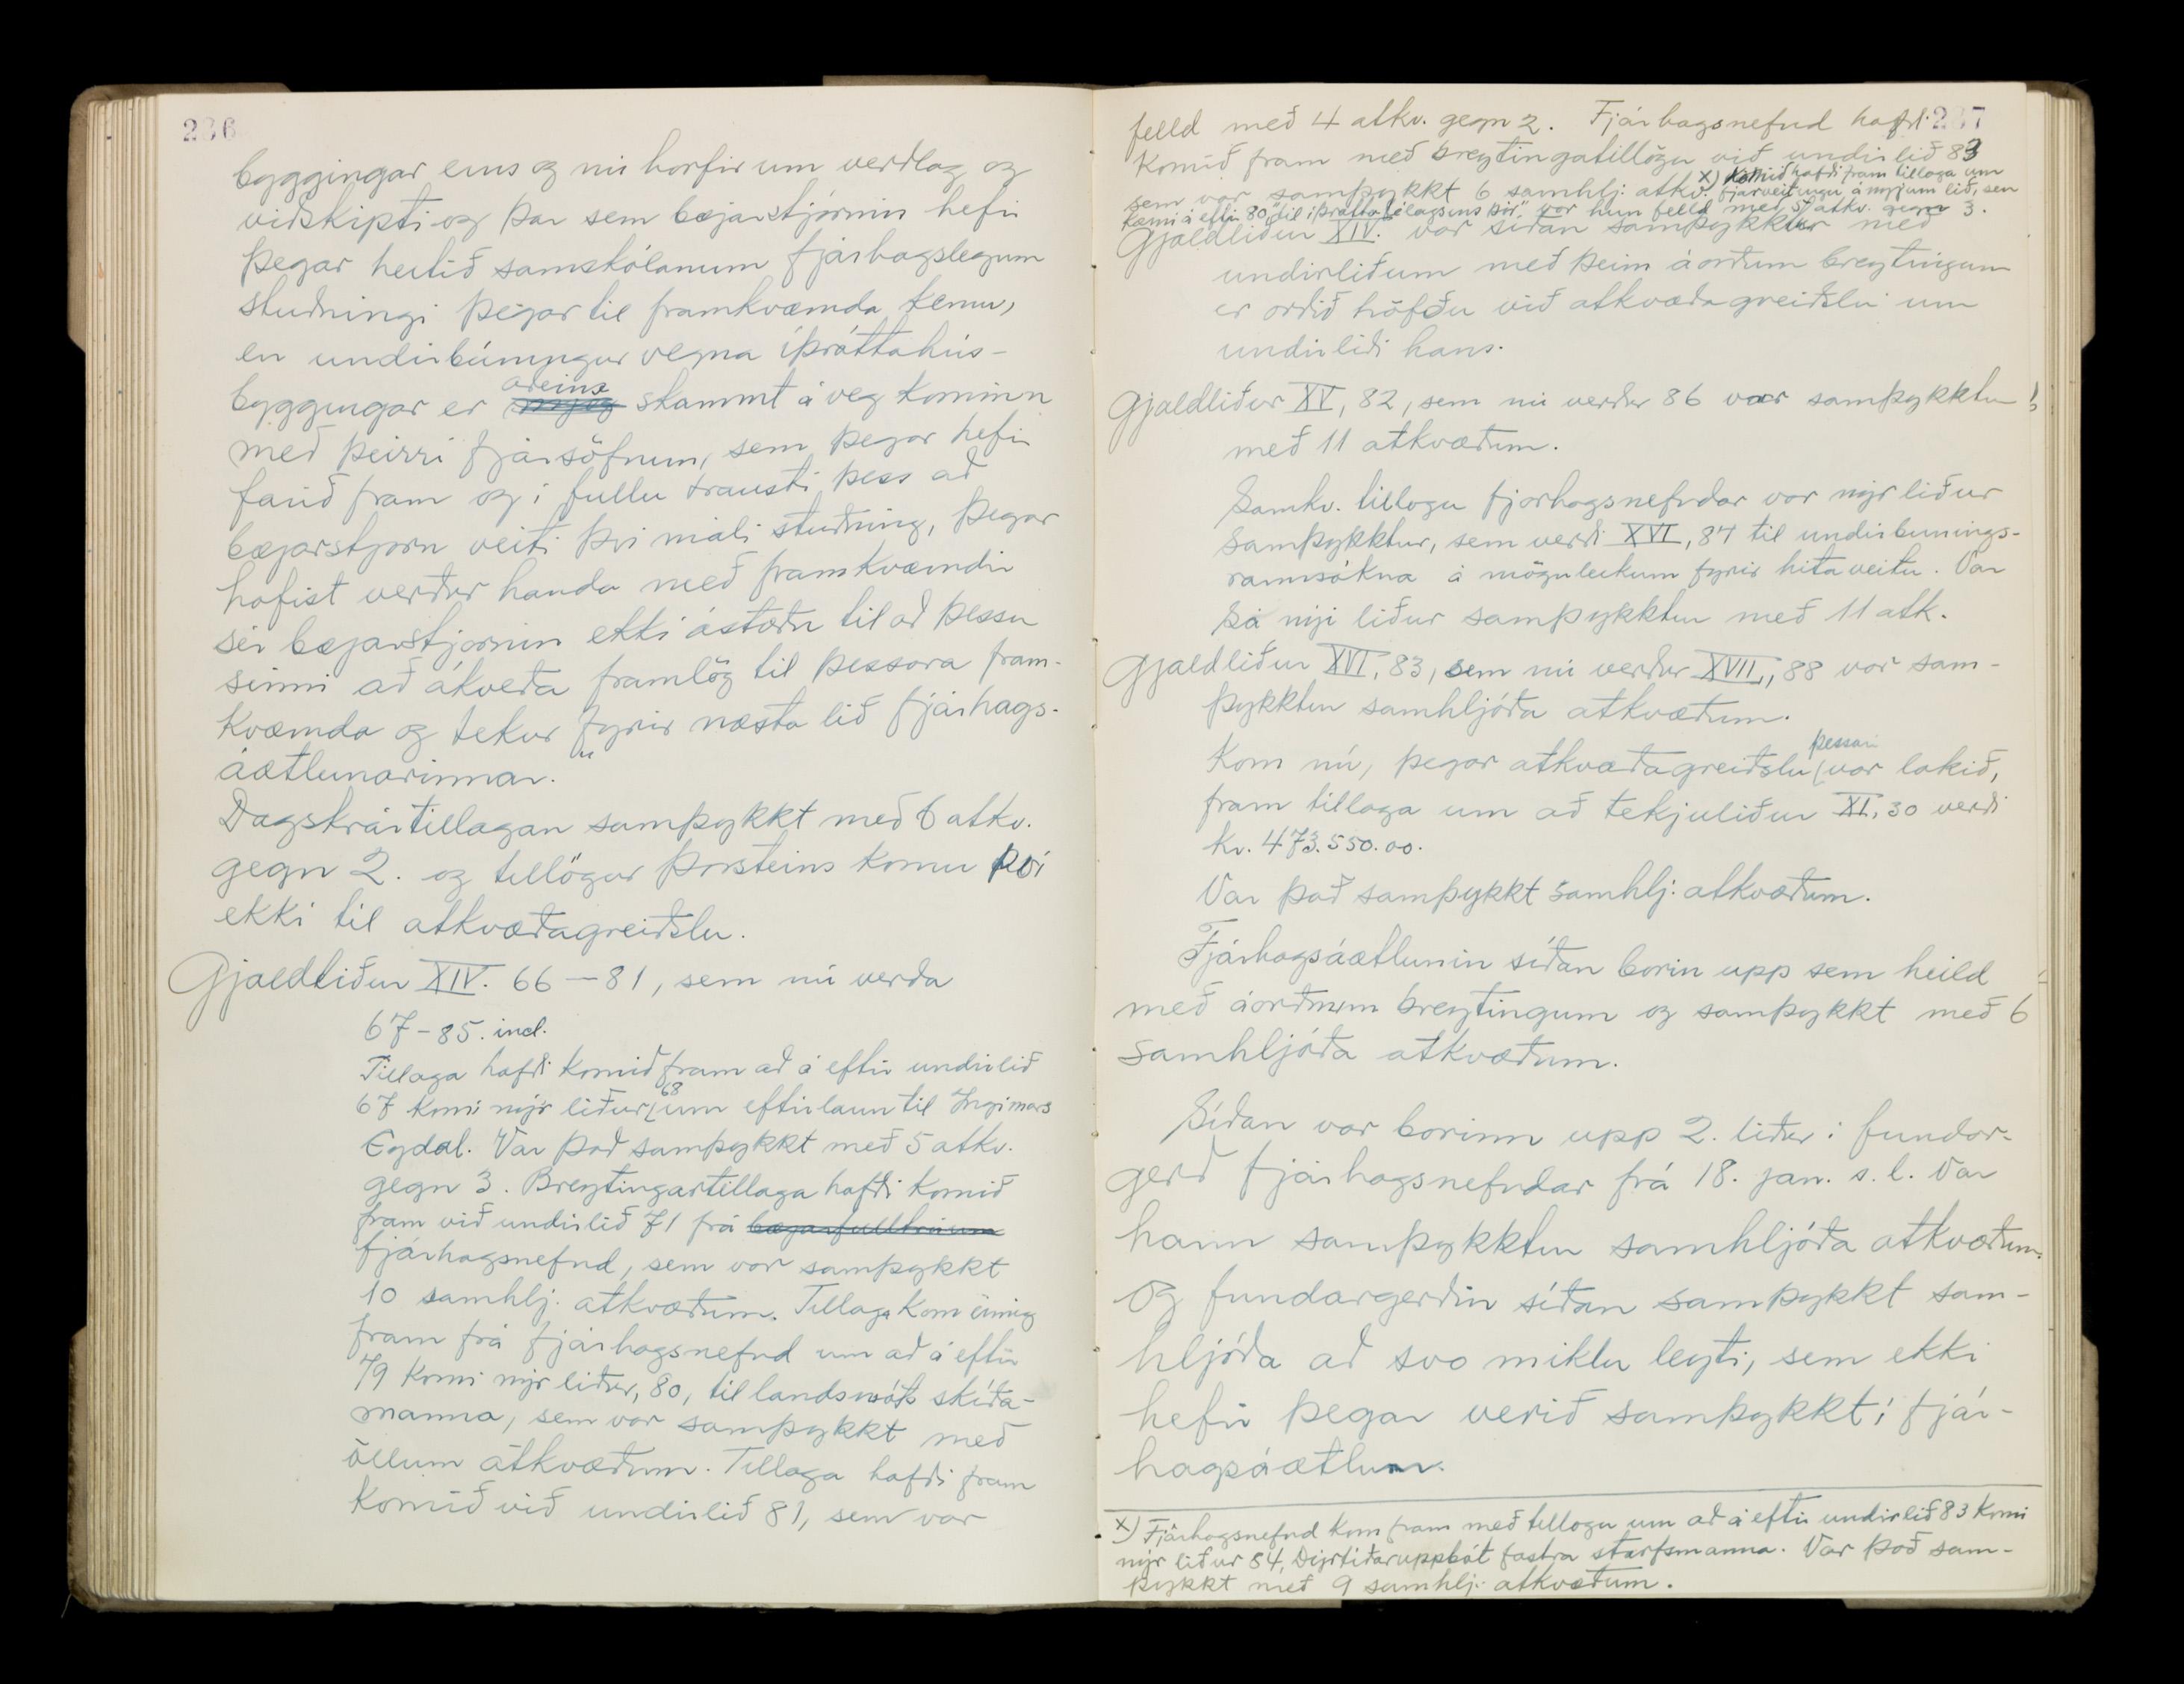 236
byggingar eins og nú horfir um verðlag og
viðskipti og þar sem bæjarstjórnin hefir
þegar heitið samskólanum fjárhagslegum
stuðningi þegar til framkvæmda kemur,
en undirbúningur vegna íþróttahús-
byggingar er aðeins skammt á veg kominn
með þeirri fjársöfnun, sem þegar hefir
farið fram og í fullu trausti þess að
bæjarstjórn veiti því máli stuðning, þegar
hafist verður handa með framkvæmdir
sér bæjarstjórnin ekki ástæðu til að þessu
sinni að ákveða framlög til þessara fram-
kvæmda og tekur fyrir næsta lið fjárhags-
áætlunarinnar."
Dagskrártillagan samþykkt með 6 atkv.
gegn 2. og tillögur Þorsteins komu því
ekki til atkvæðagreiðslu.
Gjaldliður XIV. 66 – 81, sem nú verða
67 – 85. incl.
Tillaga hafði komið fram að á eftir undirlið
67 komi nýr liður 68 um eftirlaun til Ingimars
Eydal. Var það samþykkt með 5 atkv.
gegn 3. Breytingartillaga hafði komið
fram við undirlið 71 frá bæjarfulltrúum
fjárhagsnefnd, sem var samþykkt
10 samhlj. atkvæðum. Tillaga kom einnig
fram frá fjárhagsnefnd um að á eftir
79 komi nýr liður, 80, til landsmóts skíða-
manna, sem var samþykkt með
öllum atkvæðum. Tillaga hafði fram
komið við undirlið 81, sem var
237
felld með 4 atkv. gegn 2. Fjárhagsnefnd hafði
komið fram með breytingatillögu við undirlið 83
sem var samþykkt 6 samhlj. atkv. x) Komið hafði fram tillaga um
fjárveitingu á nýjum lið, sem
kæmi á eftir 80 "til íþróttafélagsins Þór", var hún felld með 5 atkv. gegn 3.
Gjaldliður XIV. var síðan samþykktur með
undirliðum með þeim áorðum breytingum
er orðið höfðu við atkvæðagreiðslu um
undirliði hans.
Gjaldliður XV, 82, sem nú verður 86 var samþykktur
með 11 atkvæðum.
Samkv. tillögu fjárhagsnefndar var nýr liður
samþykktur, sem verði XVI, 87 til undirbúnings-
rannsókna á möguleikum fyrir hitaveitu. Var
sá nýi liður samþykktur með 11 atk.
Gjaldliður XVI, 83, sem nú verður XVII, 88 var sam-
þykktur samhljóða atkvæðum.
Kom nú, þegar atkvæðagreiðslu þessari var lokið,
fram tillaga um að tekjuliður XI, 30 verði
kr. 473.550.00.
Var það samþykkt samhlj. atkvæðum.
Fjárhagsáætlunin síðan borin upp sem heild
með áorðnum breytingum og samþykkt með 6
samhljóða atkvæðum.
Síðan var borinn upp 2. liður í fundar-
gerð fjárhagsnefndar frá 18. jan. s.l. Var
hann samþykktur samhljóða atkvæðum.
Og fundargerðin síðan samþykkt sam-
hljóða að svo miklu leyti, sem ekki
hefir þegar verið samþykkt í fjár-
hagsáætlun.
x) Fjárhagsnefnd kom fram með tillögu um að á eftir undirlið 83 komi
nýr liður 84, Dýrtíðaruppbót fastra starfsmanna. Var það sam-
þykkt með 9 samhlj. atkvæðum.